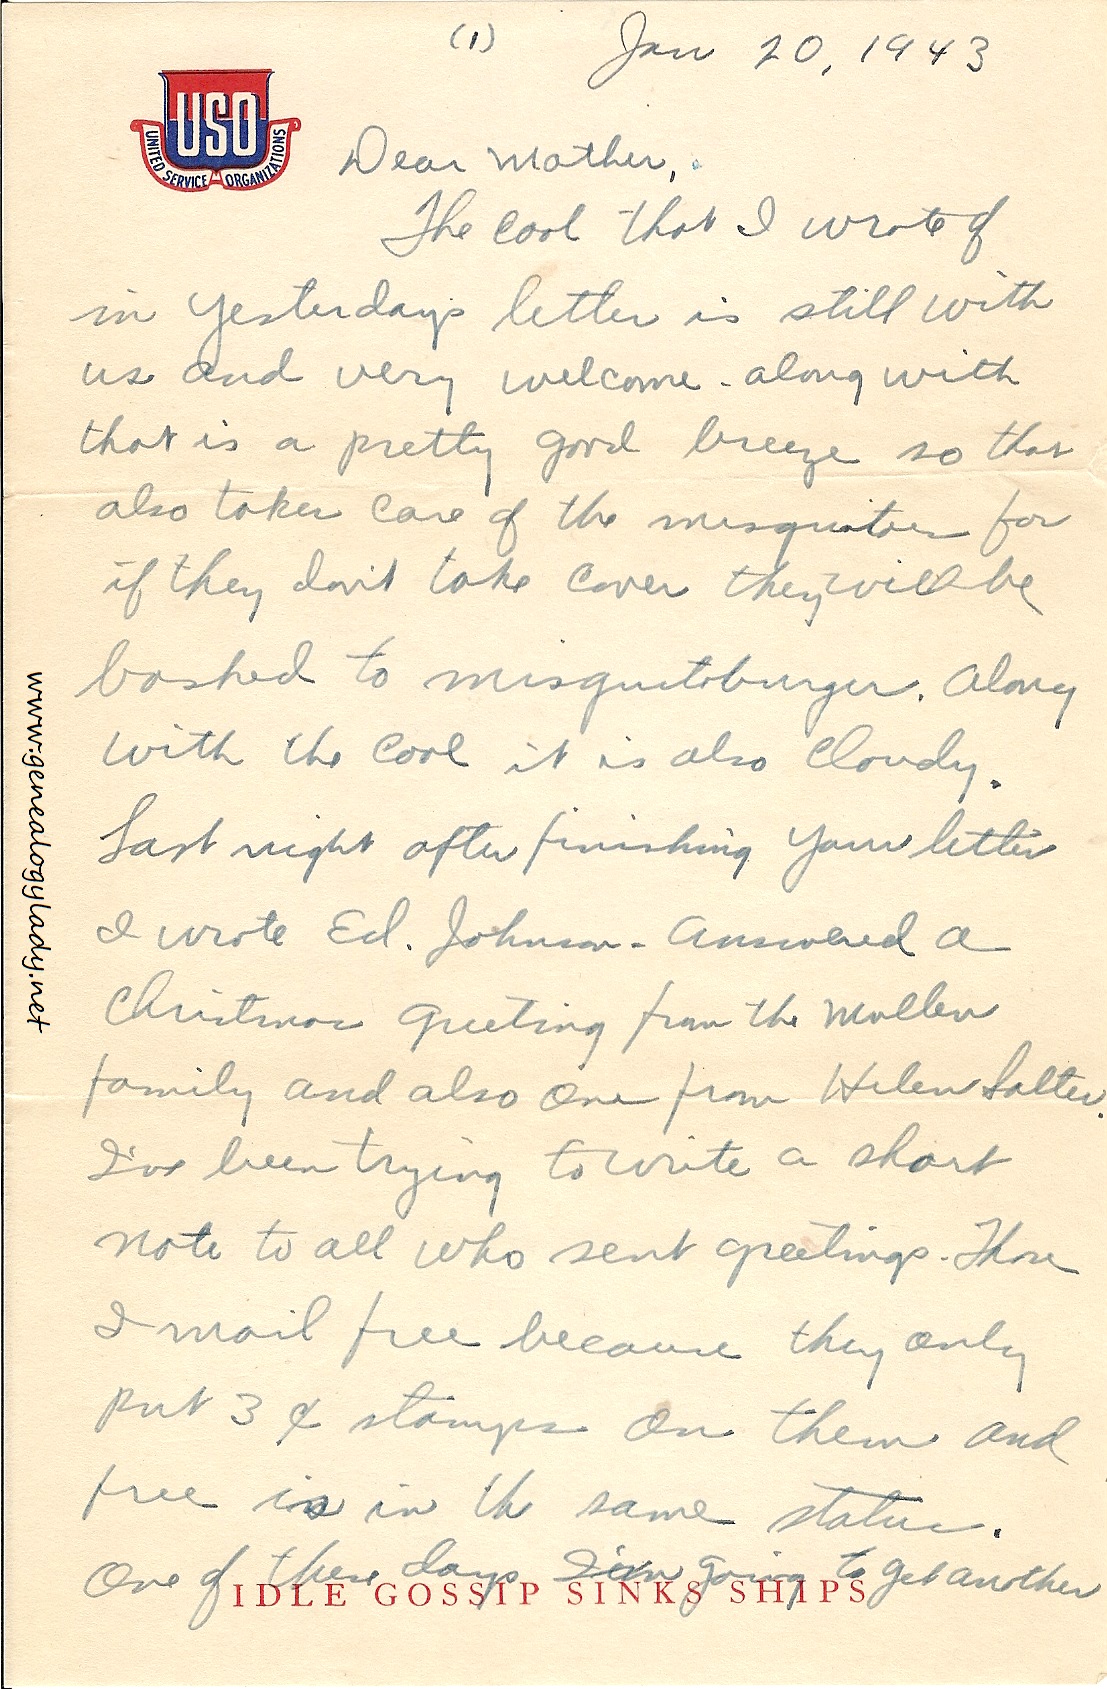 (1) Jan 20, 1943
USO
UNITED SERVICE ORGANIZATIONS
Dear Mother,
The cool that I wrote of
in yesterdays letter is still with
us and very welcome - along with
that is a pretty good breeze so that
also takes care of the misquitoes for
if they don't take cover they will be
bashed to misquitoburger. Along
with the cool it is also cloudy.
Last night after finishing your letter
I wrote Ed. Johnson - answered a
Christmas greeting from the Mullen
family and also one from Helen Salter.
I've been trying to write a short
note to all who sent greetings. Those
I mail free because they only
put 3 ¢ stamps on them and
free is in th same status.
One of these days I'm going to get another
IDLE GOSSIP SINKS SHIPS
www.genealogylady.net